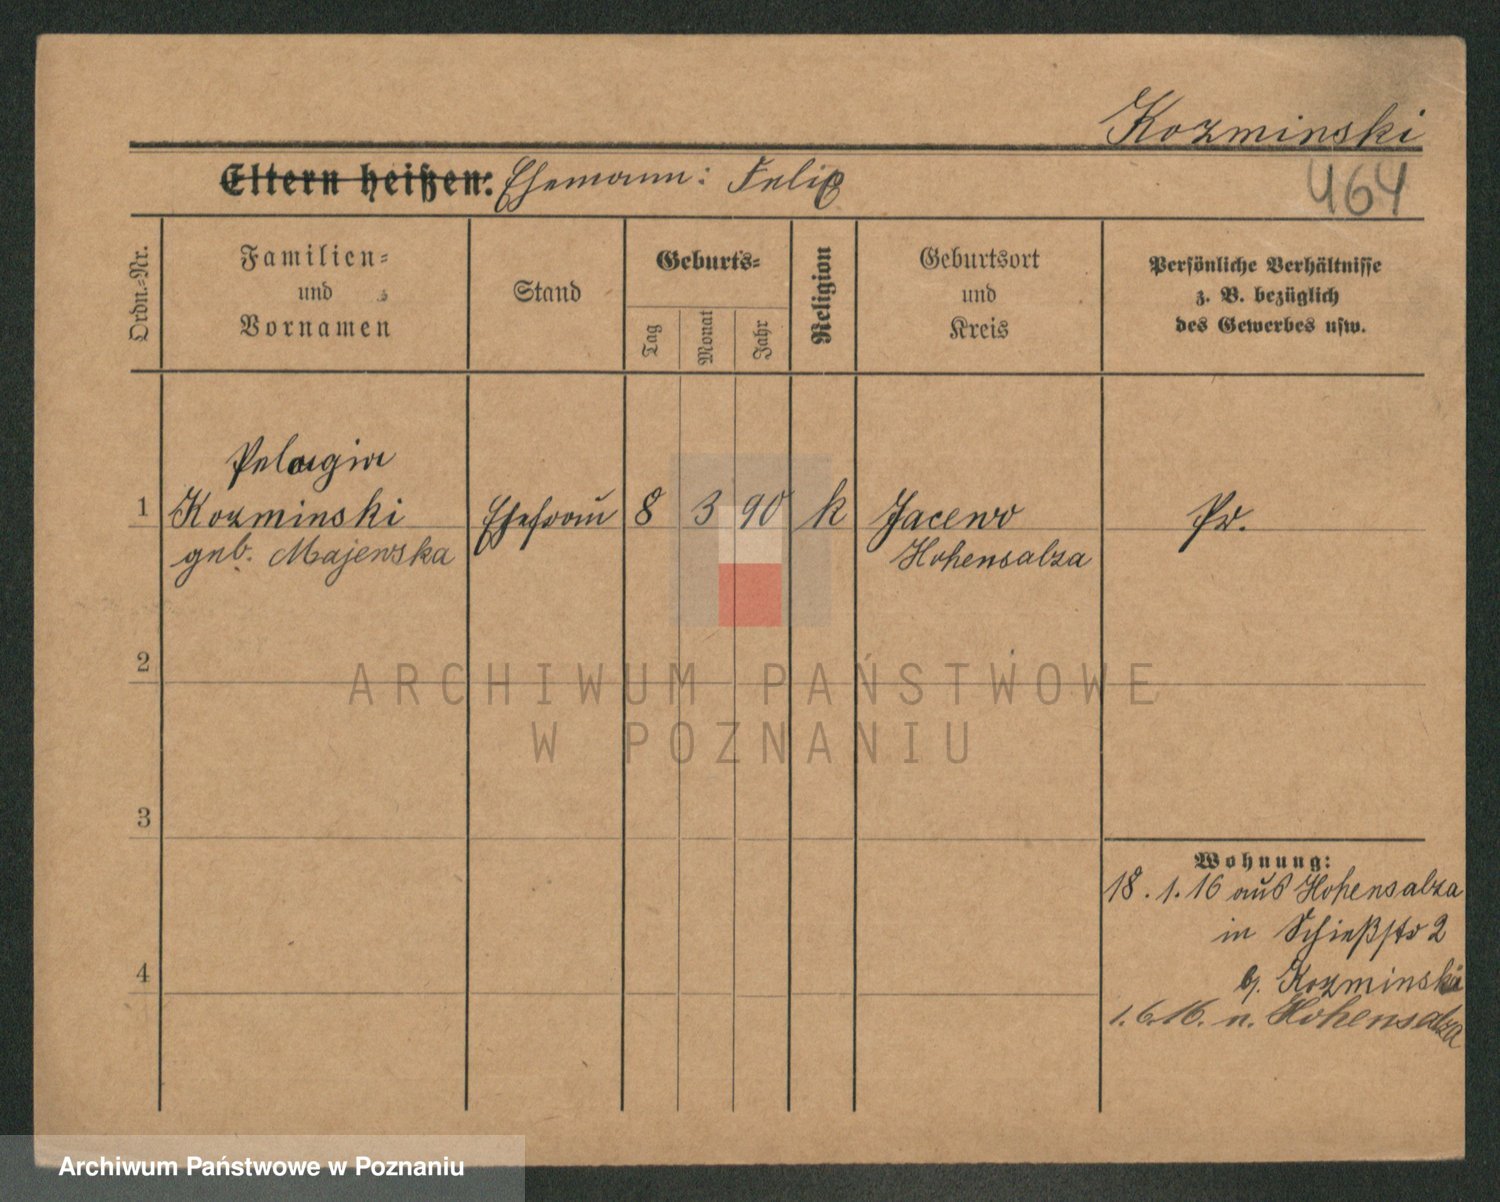 Kozminski
Eltern heißen: Ehemann: Felix
464
Ordn.-Nr.
Familien-
und
Vornamen
Stand
Geburts-
Tag
Monat
Jahr
Religion
Geburtsort
und
Kreis
Persönliche Verhältnisse
z. B. bezüglich
des Gewerbes usw.
Pelagia
1 Kozminski Ehefrau 8 3 90 k Jacewo Pr.
geb. Majewska Hohensalza
2
ARCHIWUM PAŃSTWOWE
W POZNANIU
3
Wohnung:
18.1.16 aus Hohensalza
in Schießstr 2
b. Kozminski
4
1.6.16. n. Hohensalza
Archiwum Państwowe w Poznaniu